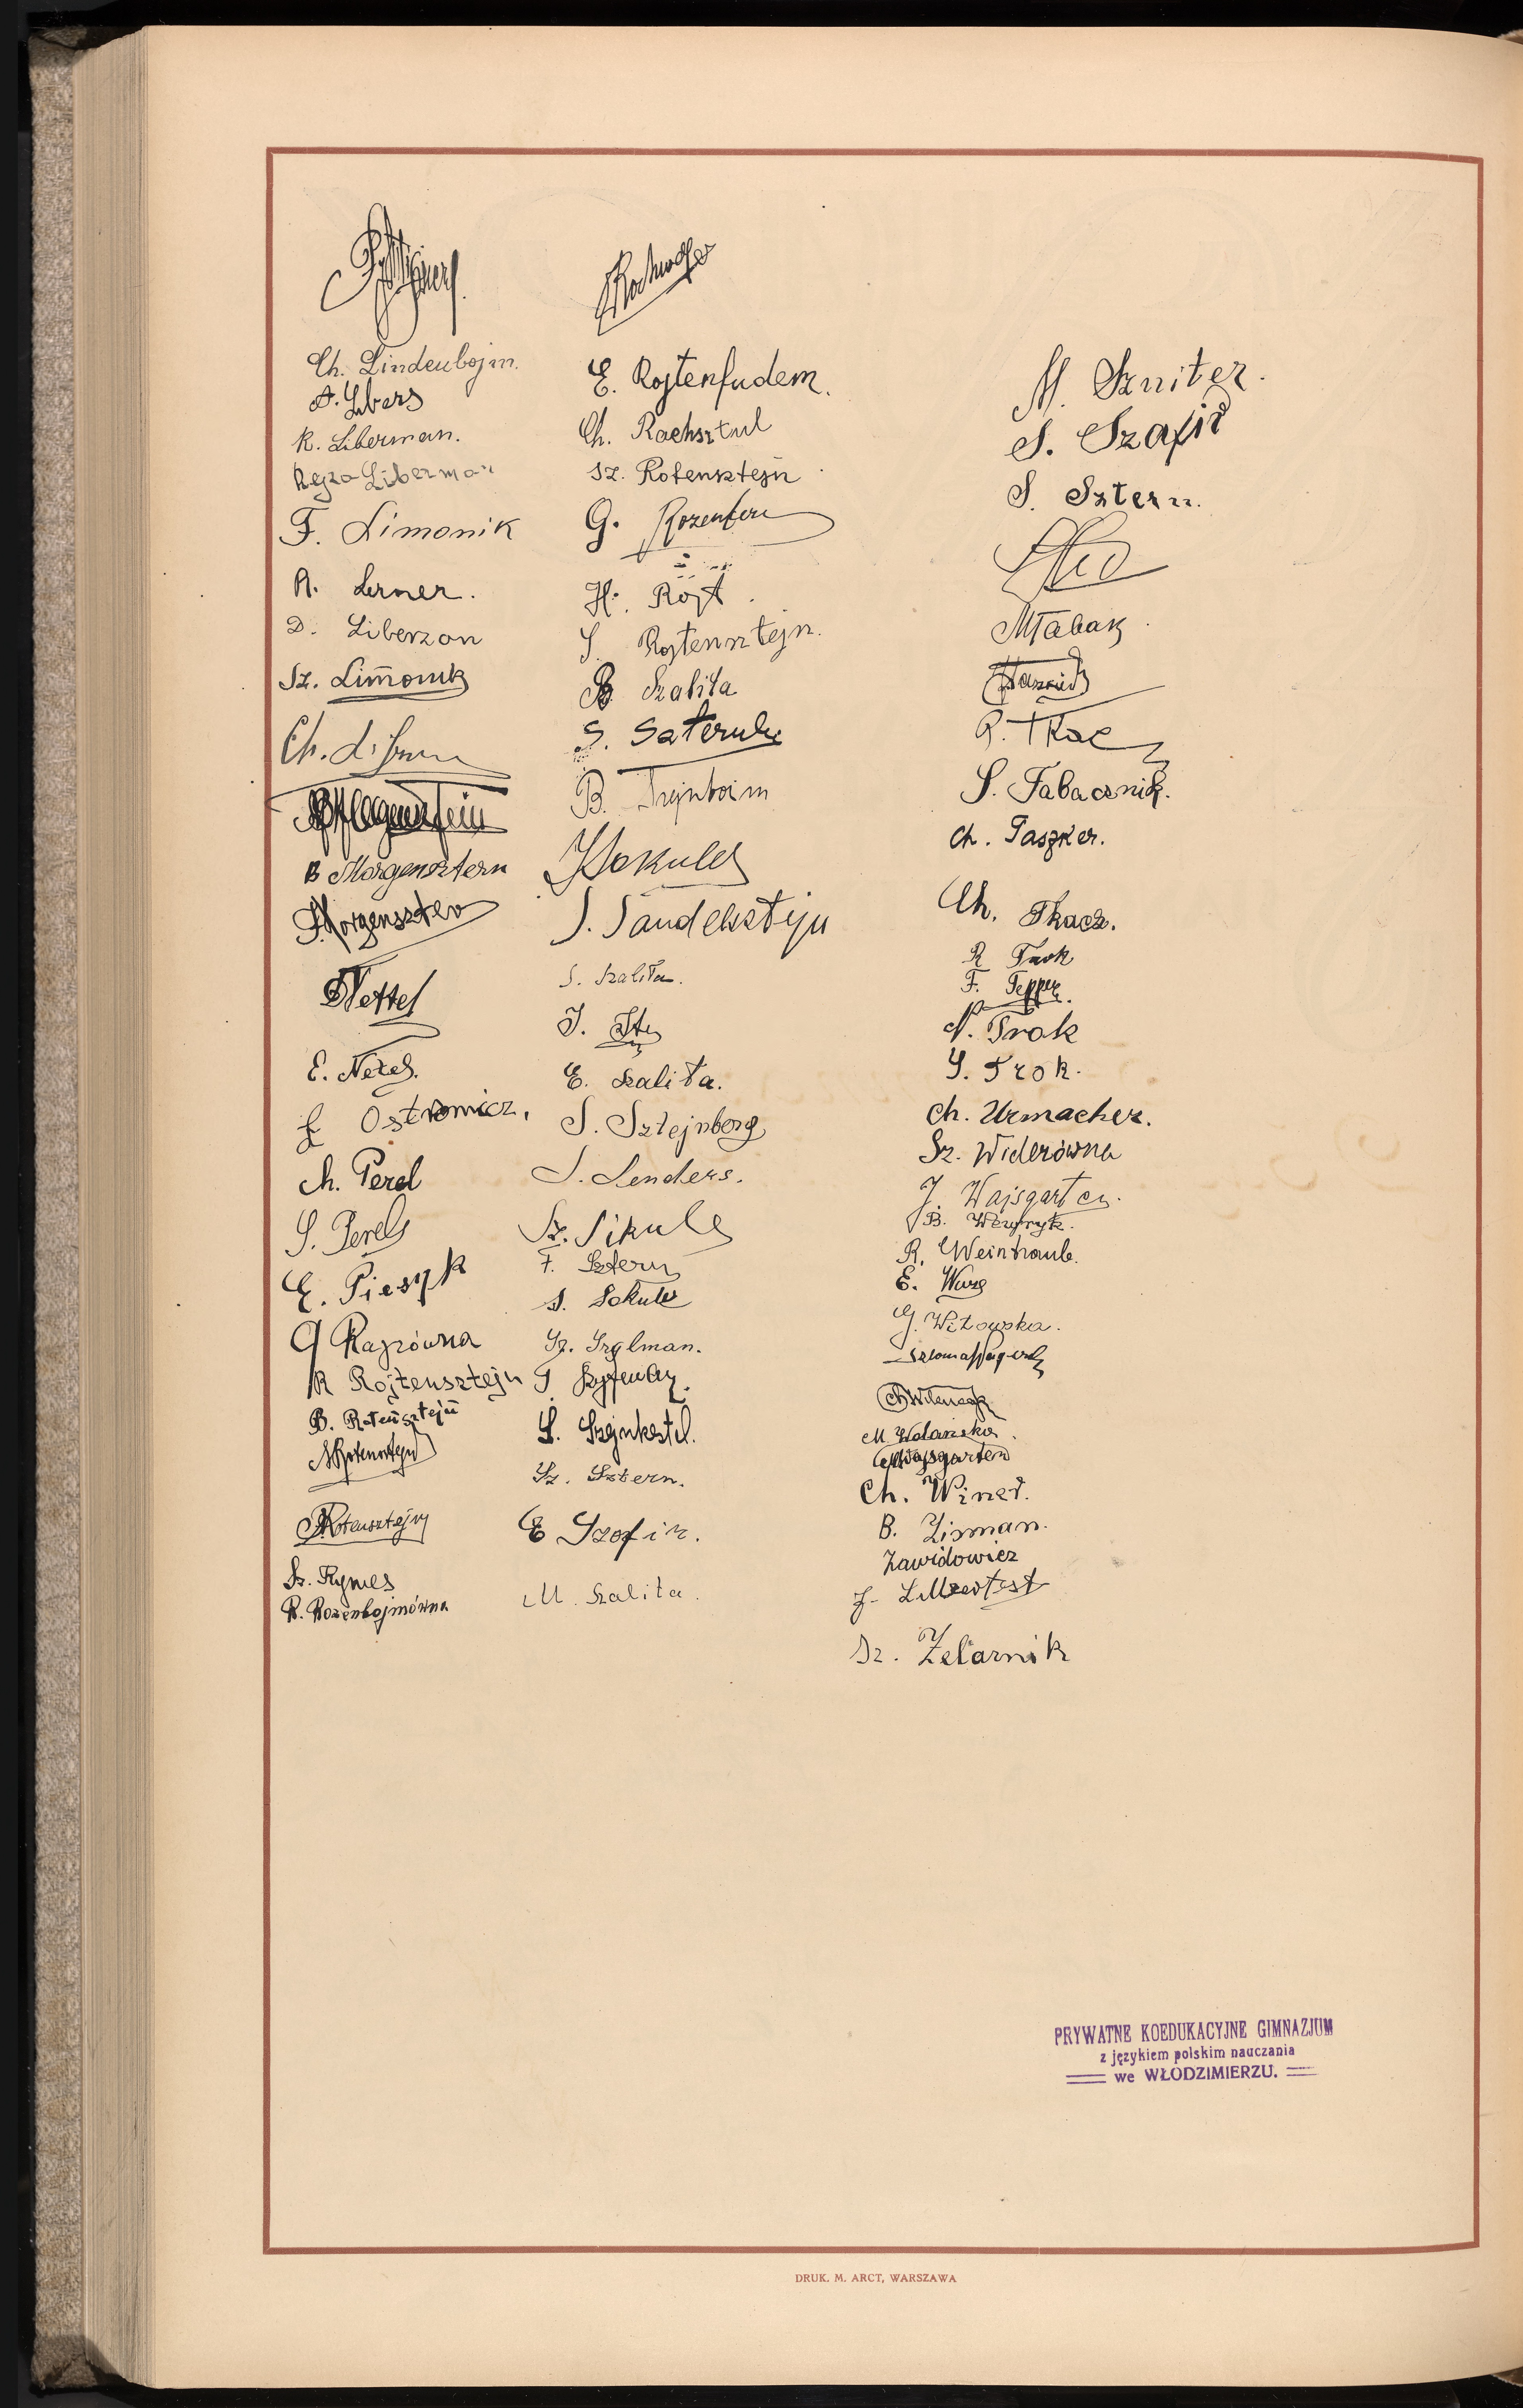 Ch. Lindenbojm.
A. Libers
R. Liberman.
Rejza Liberman
F. Limonik
A. Lerner.
D. Liberzon
Sz. Limonik
Ch.
B Morgensztern
Morgenszter
Nettel
E. Netel.
Ostrowicz.
Ch. Perel
S. Perel
E. Piesyk
Rajzówna
R Rojtensztejn
B. Rotensztejn
Rotensztejn
Rotensztejn
Sz. Rymes
R. Rozenbojmówna
E. Rojtenfudem.
Ch. Rachsztul
Sz. Rotensztejn
G.
H. Rojt.
S. Rojtensztejn.
B. Szalita
S.
B.
Sokule
S. Sandelsztejn
S. Szalita.
J.
E. Szalita.
S. Sztejnberg
S. Senders.
Sz. Sikule
F. Sztern
S. Sokule
Sz.
S. Szejnkestel.
Sz. Sztern.
E Szafir.
M. Szalita.
M. Szniter.
S. Szafir
S. Sztern.
M Tabak
R. Tkac
S. Tabacznik.
Ch. Taszker.
Ch. Tkacz.
R Trok
F. Tepper.
N. Trok
S. Trok.
Ch. Urmacher.
Sz. Widerówna
J. Wajsgarten.
B.
R. Weintraub.
E. Wurg
G. Witowska.
M. Wolańska.
Wajsgarten
Ch. Winer.
B. Zisman.
Zawidowicz
J.
Sz. Żelaznik
PRYWATNE KOEDUKACYJNE GIMNAZJUM
z językiem polskim nauczania
we WŁODZIMIERZU.
DRUK. M. ARCT, WARSZAWA